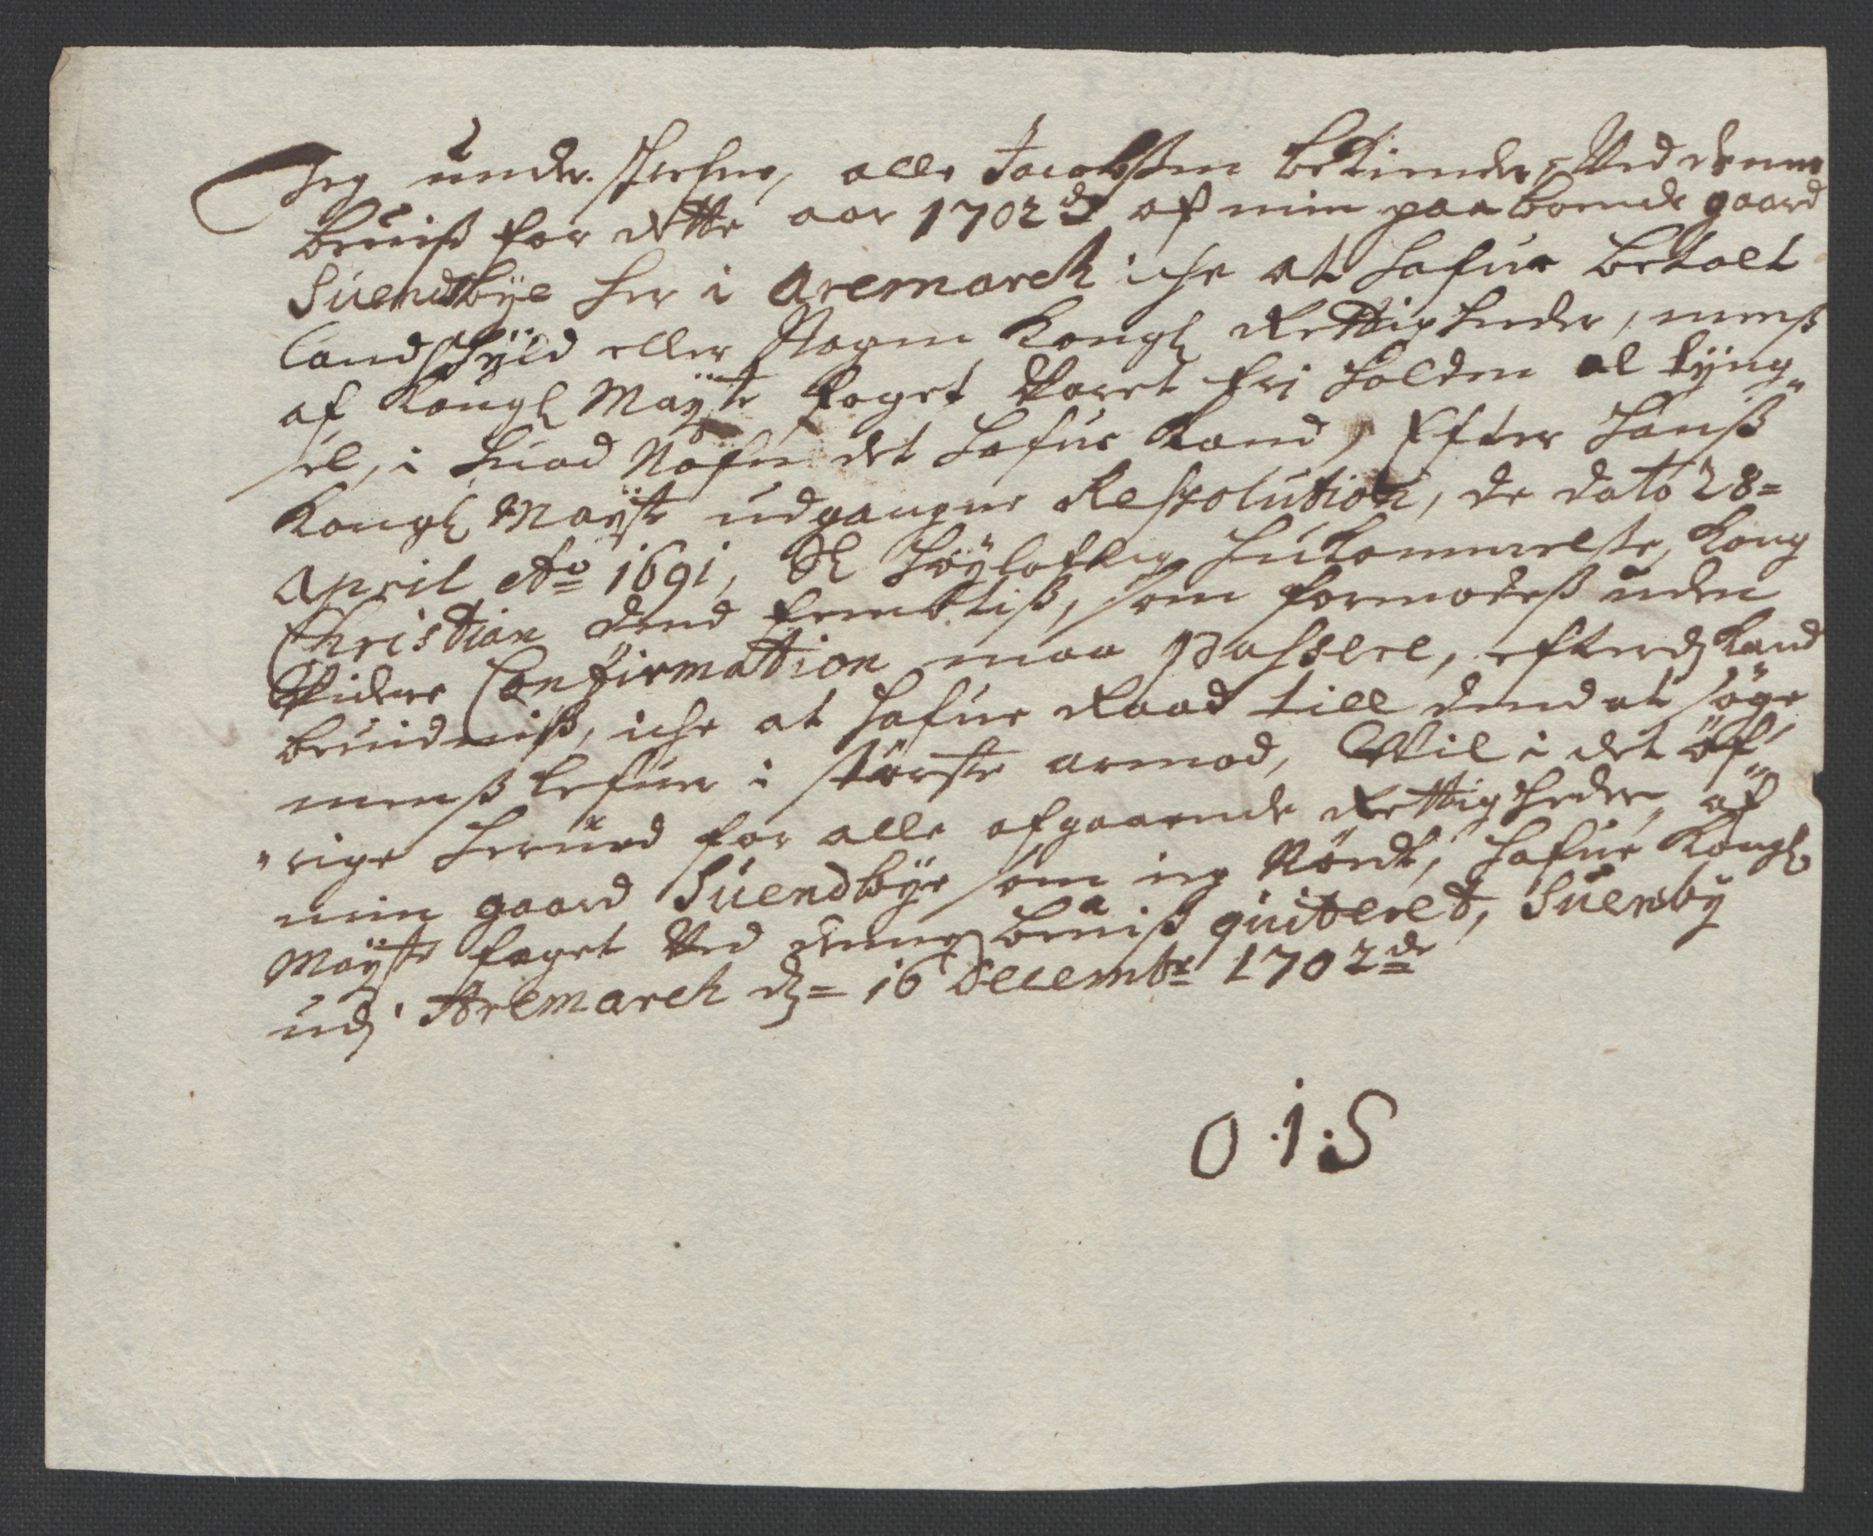 Jeg under skrefne, olle Jacobsen bekiender, Ved denne
beuiiß for dette aar 1702de af min paaboende gaard
Suendbÿe her i Aremarch iche at hafue betalt
Landschÿld eller Nogen kongl Rettigheder, menß
af kongl Maÿts foget Varet fri holden al tÿng,,
sel, i huad Nafn det hafue kand, Efter hanß
kongl Maÿts udgangne Resolution, de dato 28=
April Ao 1691, Sl høÿloflig hukommelse, kong
Christian dend femtiß, som formodeß uden
Videre Confirmation maa passere, efterdj kand
beuidniß, iche at hafue Raad till dend at søge
menß lefuer i største armod, Vil i det øf,,
,,rige herued for alle afgaaende Rettigheder, af
min gaard Suendbÿe som ieg Nÿdt, hafue kongl
Maÿts foget Ved denne beuiiß quiteret, Suenbÿ
udj Aremarch dj= 16 Decembr 1702de
O·I·S